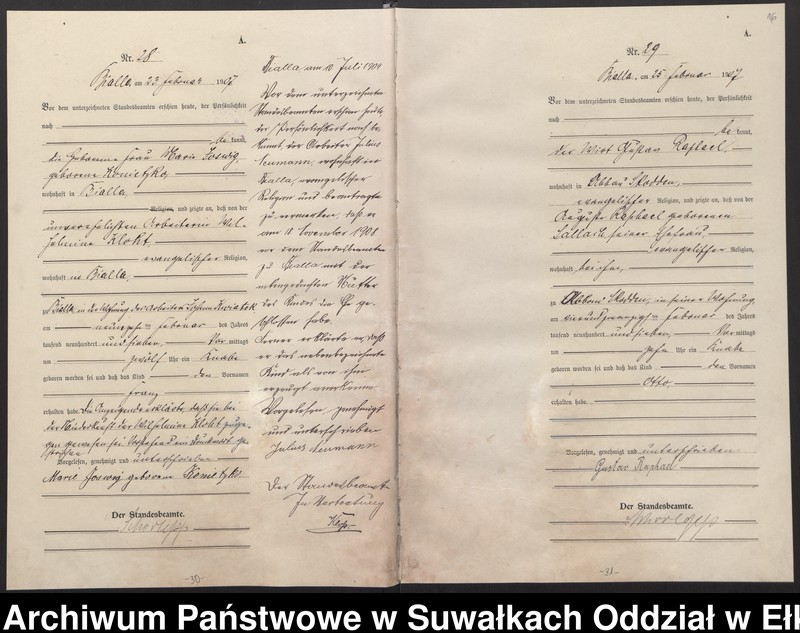 A.
Nr. 28
Bialla, am 23. Februar 1907
Vor dem unterzeichneten Standesbeamten erschien heute, der Persönlichkeit
nach
be kannt,
die Hebamme Frau Marie Joswig,
geborene Konietzko,
wohnhaft in Bialla,
Religion, und zeigte an, daß von der
unverehelichten Arbeiterin Wil-
helmine Klokt,
evangelischer Religion,
wohnhaft in Bialla,
zu Bialla in der Wohnung des Arbeiters Johann
am Februar des Jahres
tausend neunhundert und sieben, Vor mittags
um zwölf Uhr ein Knabe
geboren worden sei und daß das Kind den Vornamen
Franz
erhalten habe. Die Anzeigende erklärte, daß sie bei
der Niederkunft der Wilhelmine Klokt zuge-
gen gewesen sei.
Vorgelesen, genehmigt und unterschrieben
Marie Joswig geborene Konietzko.
Der Standesbeamte.
-30-
Bialla, am 10 Juli 1909
Vor dem unterzeichneten
Standesbeamten erschien heute,
der Persönlichkeit nach be-
kannt, der Arbeiter Julius
Neumann, wohnhaft in
Bialla, evangelischer
Religion und beantragte
zu vermerken, daß er
am November 1908
vor dem Standesbeamten
zu Bialla mit der
nebengedachten Mutter
des Kindes die Ehe ge-
schlossen habe.
Ferner erklärte er, daß
er das nebenbezeichnete
Kind als von ihm
erzeugt anerkenne
Vorgelesen genehmigt
und unterschrieben
Julius Neumann
Der Standesbeamte
In Vertretung
A.
Nr. 29
Bialla, am 25 Februar 1907
Vor dem unterzeichneten Standesbeamten erschien heute, der Persönlichkeit
nach
be kannt,
der Wirt Gustav Raphael,
wohnhaft in Abbau Skodden,
evangelischer Religion, und zeigte an, daß von der
Auguste Raphael geborenen
Sallach, seiner Ehefrau,
evangelischer Religion,
wohnhaft bei ihm,
zu Abbau Skodden, in seiner Wohnung
am vierundzwanzigsten Februar des Jahres
tausend neunhundert und sieben, Vor mittags
um zehn Uhr ein Knabe
geboren worden sei und daß das Kind den Vornamen
Otto
erhalten habe.
Vorgelesen, genehmigt und unterschrieben
Gustav Raphael
Der Standesbeamte.
-31-
Archiwum Państwowe w Suwałkach Oddział w Ełk